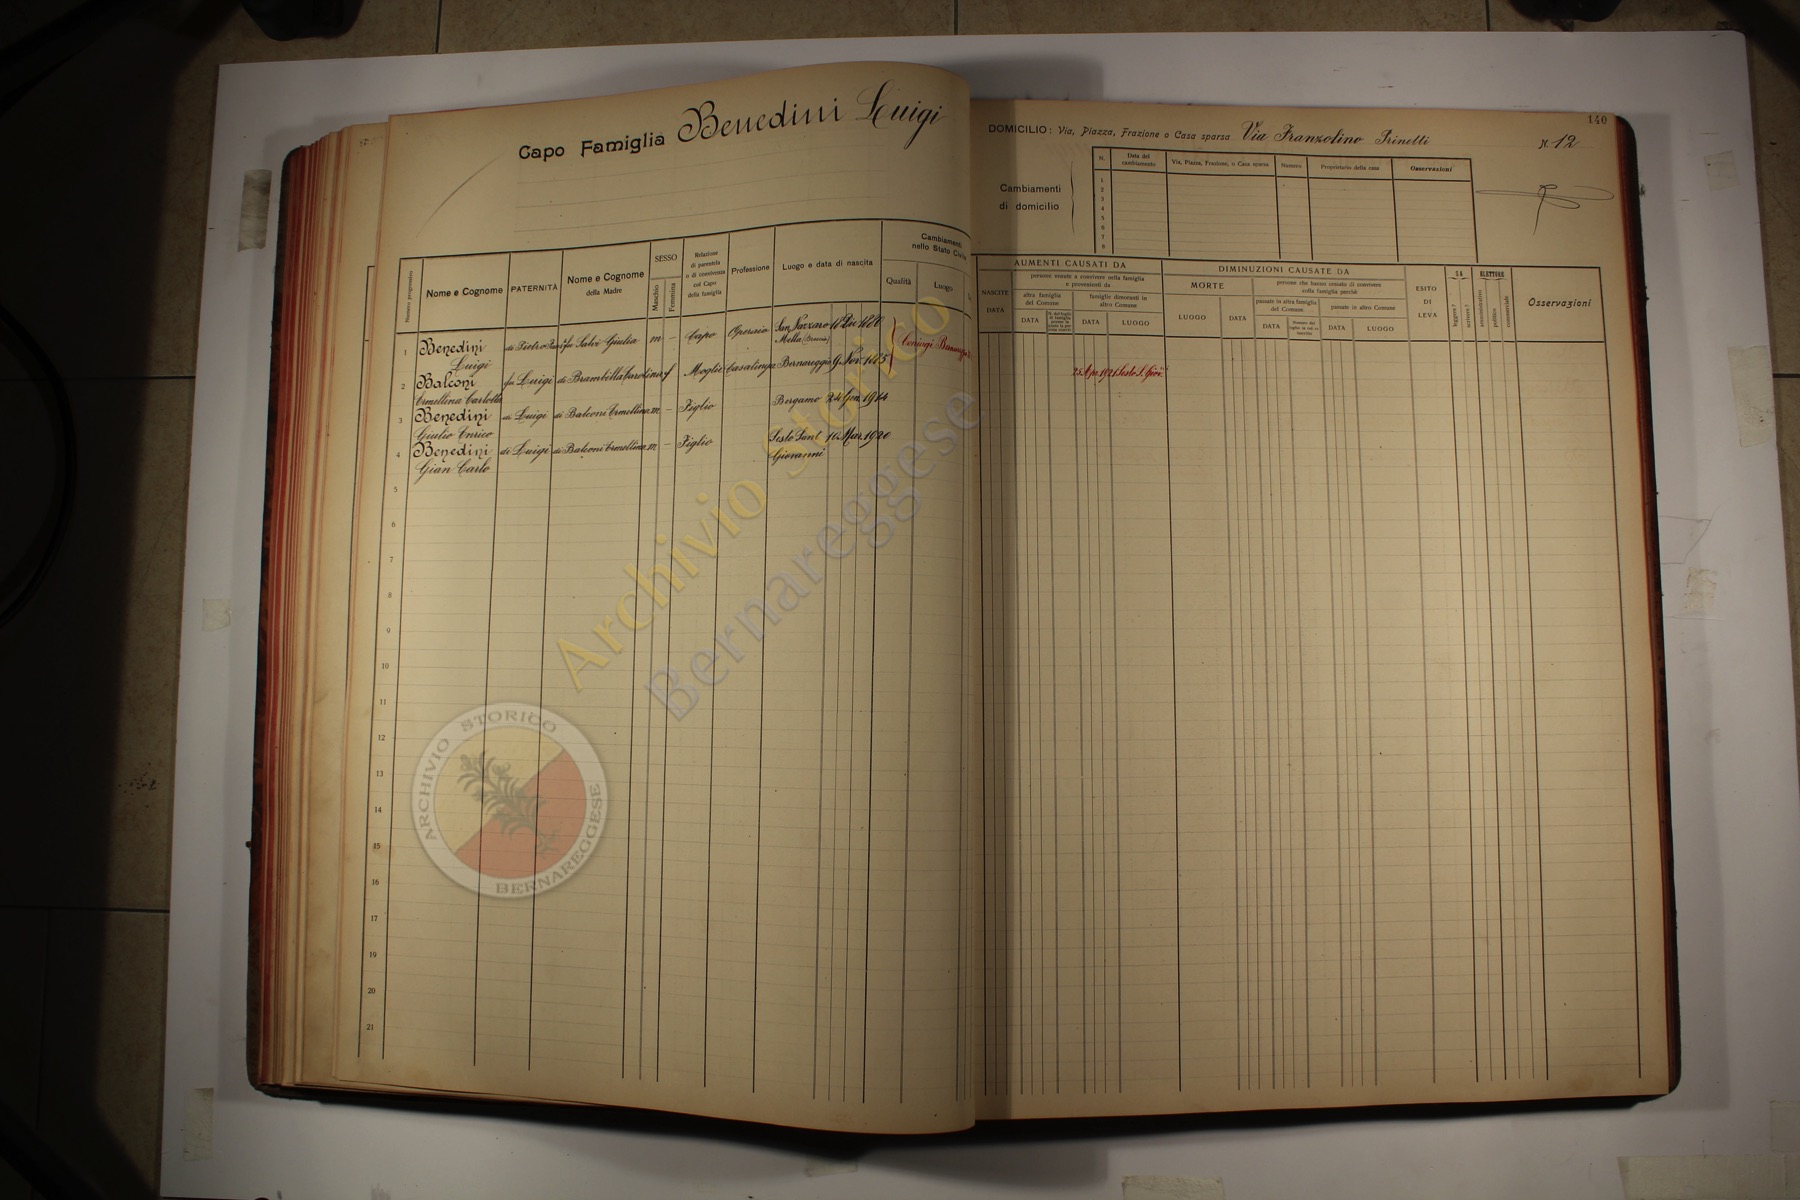 Capo Famiglia Benedini Luigi
140
DOMICILIO: Via, Piazza, Frazione o Casa sparsa Via Franzolino Prinetti N. 12
Cambiamenti di domicilio
N. Data del cambiamento Via, Piazza, Frazione, o Casa sparsa Numero Proprietario della casa Osservazioni
1
2
3
4
5
6
7
8
Numero progressivo
Nome e Cognome
PATERNITÀ
Nome e Cognome della Madre
SESSO
Maschio
Femmina
Relazione di parentela o di convivenza col Capo della famiglia
Professione
Luogo e data di nascita
Cambiamenti nello Stato Civile
Qualità
Luogo
AUMENTI CAUSATI DA
NASCITE
DATA
persone venute a convivere nella famiglia e provenienti da
altra famiglia del Comune
DATA
famiglie dimoranti in altro Comune
DATA LUOGO
DIMINUZIONI CAUSATE DA
MORTE
LUOGO DATA
persone che hanno cessato di convivere colla famiglia perchè
passate in altra famiglia del Comune
DATA
passate in altro Comune
DATA LUOGO
ESITO DI LEVA
SA
leggere?
scrivere?
ELETTORE
amministrativo
politico
commerciale
Osservazioni
1 Benedini Luigi di Pietro fu Salvi Giulia m – Capo Operaio San Nazzaro Mella (Brescia)
2 Balconi Ermellina Carlotta fu Luigi di Brambilla Carolina f Moglie Casalinga Bernareggio 9 Nov. 1885 Coniugi
25 Apr. 1921 Sesto S. Giov.
3 Benedini Giulio Enrico di Luigi di Balconi Ermellina m – Figlio Bergamo 24 Gen. 1914
4 Benedini Gian Carlo di Luigi di Balconi Ermellina m – Figlio Sesto Sant Giovanni 10 Mar. 1920
5
6
7
8
9
10
11
12
13
14
15
16
17
18
19
20
21
Archivio storico
Bernareggese
ARCHIVIO STORICO
BERNAREGGESE